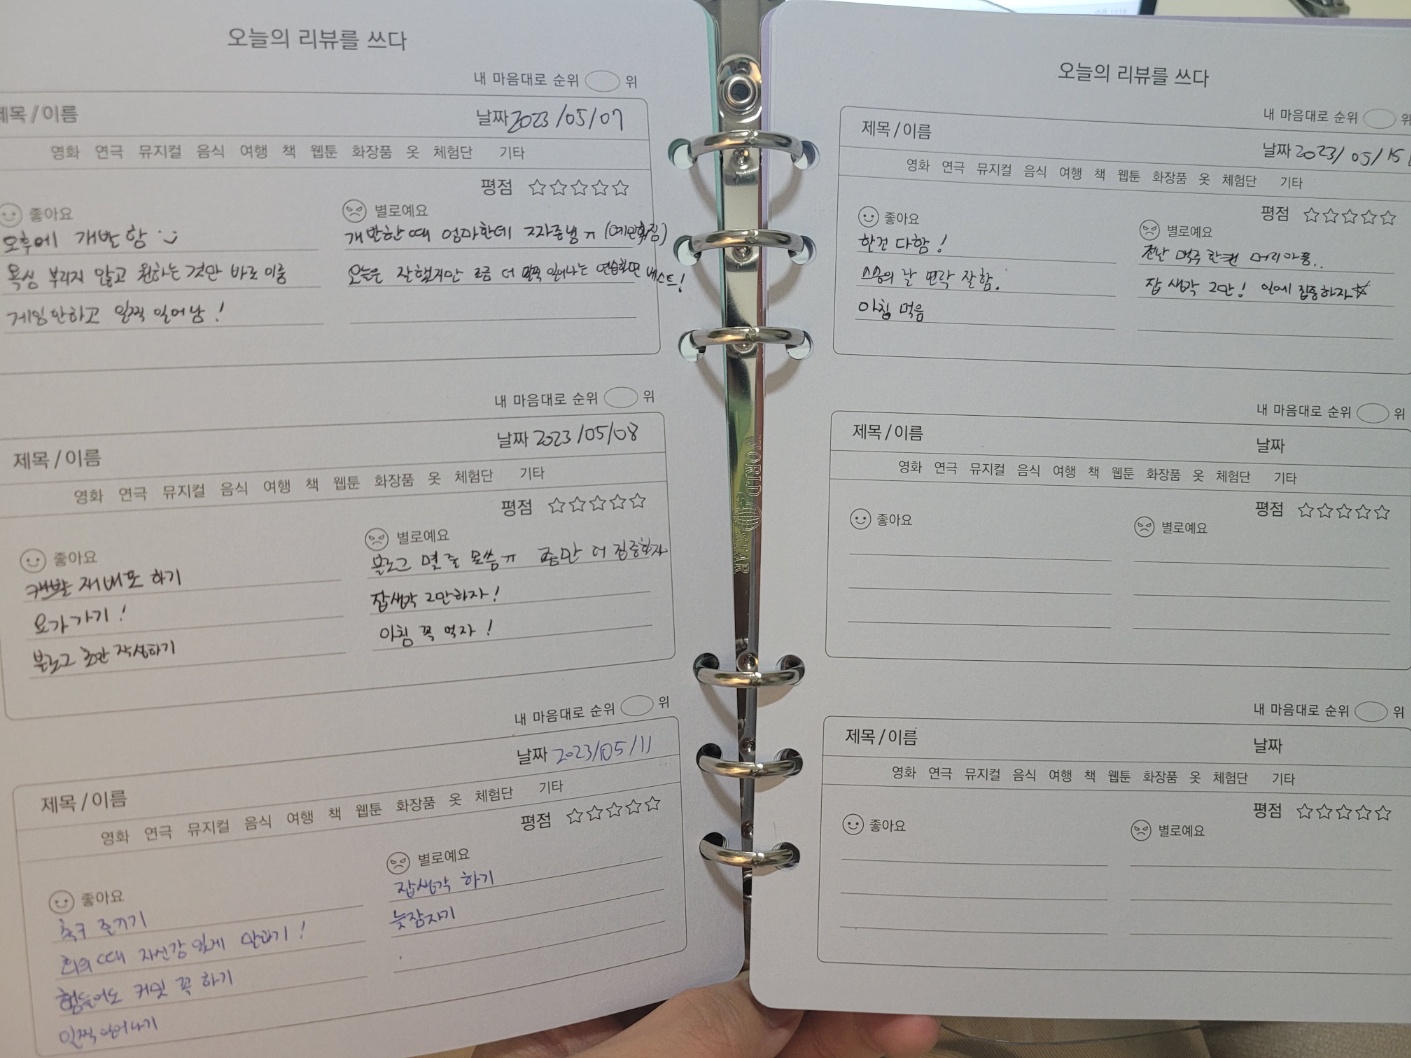 오늘의 리뷰를 쓰다
내 마음대로 순위 위
제목/이름 날짜 2023/05/07
영화 연극 뮤지컬 음식 여행 책 웹툰 화장품 옷 체험단 기타
평점 ☆☆☆☆☆
좋아요
오후에 개발함
욕심 부리지 않고 원하는 것만 바로 이룸
게임 안하고 일찍 일어남!
별로예요
개발한 때 엄마한테 짜증냄 ㅠ
오늘은 잘했지만 조금 더 일찍 일어나는 연습하면 베스트!
내 마음대로 순위 위
제목/이름 날짜 2023/05/08
영화 연극 뮤지컬 음식 여행 책 웹툰 화장품 옷 체험단 기타
평점 ☆☆☆☆☆
좋아요
개발 재배포 하기
요가가기!
블로그 초안 작성하기
별로예요
블로그 몇 줄 못씀ㅠ 좀만 더 집중하자
잡생각 그만하자!
아침 꼭 먹자!
내 마음대로 순위 위
제목/이름 날짜 2023/05/11
영화 연극 뮤지컬 음식 여행 책 웹툰 화장품 옷 체험단 기타
평점 ☆☆☆☆☆
좋아요
축구 즐기기
회의때 자신감 있게 말하기!
힘들어도 커밋 꼭 하기
일찍 일어나기
별로예요
잡생각 하기
늦잠자기
오늘의 리뷰를 쓰다
내 마음대로 순위 위
제목/이름 날짜 2023/05/15
영화 연극 뮤지컬 음식 여행 책 웹툰 화장품 옷 체험단 기타
평점 ☆☆☆☆☆
좋아요
한건 다함!
스승의 날 연락 잘함.
아침 먹음
별로예요
전날 맥주 한캔 머리아픔..
잡 생각 그만! 일에 집중하자
내 마음대로 순위 위
제목/이름 날짜
영화 연극 뮤지컬 음식 여행 책 웹툰 화장품 옷 체험단 기타
평점 ☆☆☆☆☆
좋아요 별로예요
내 마음대로 순위 위
제목/이름 날짜
영화 연극 뮤지컬 음식 여행 책 웹툰 화장품 옷 체험단 기타
평점 ☆☆☆☆☆
좋아요 별로예요